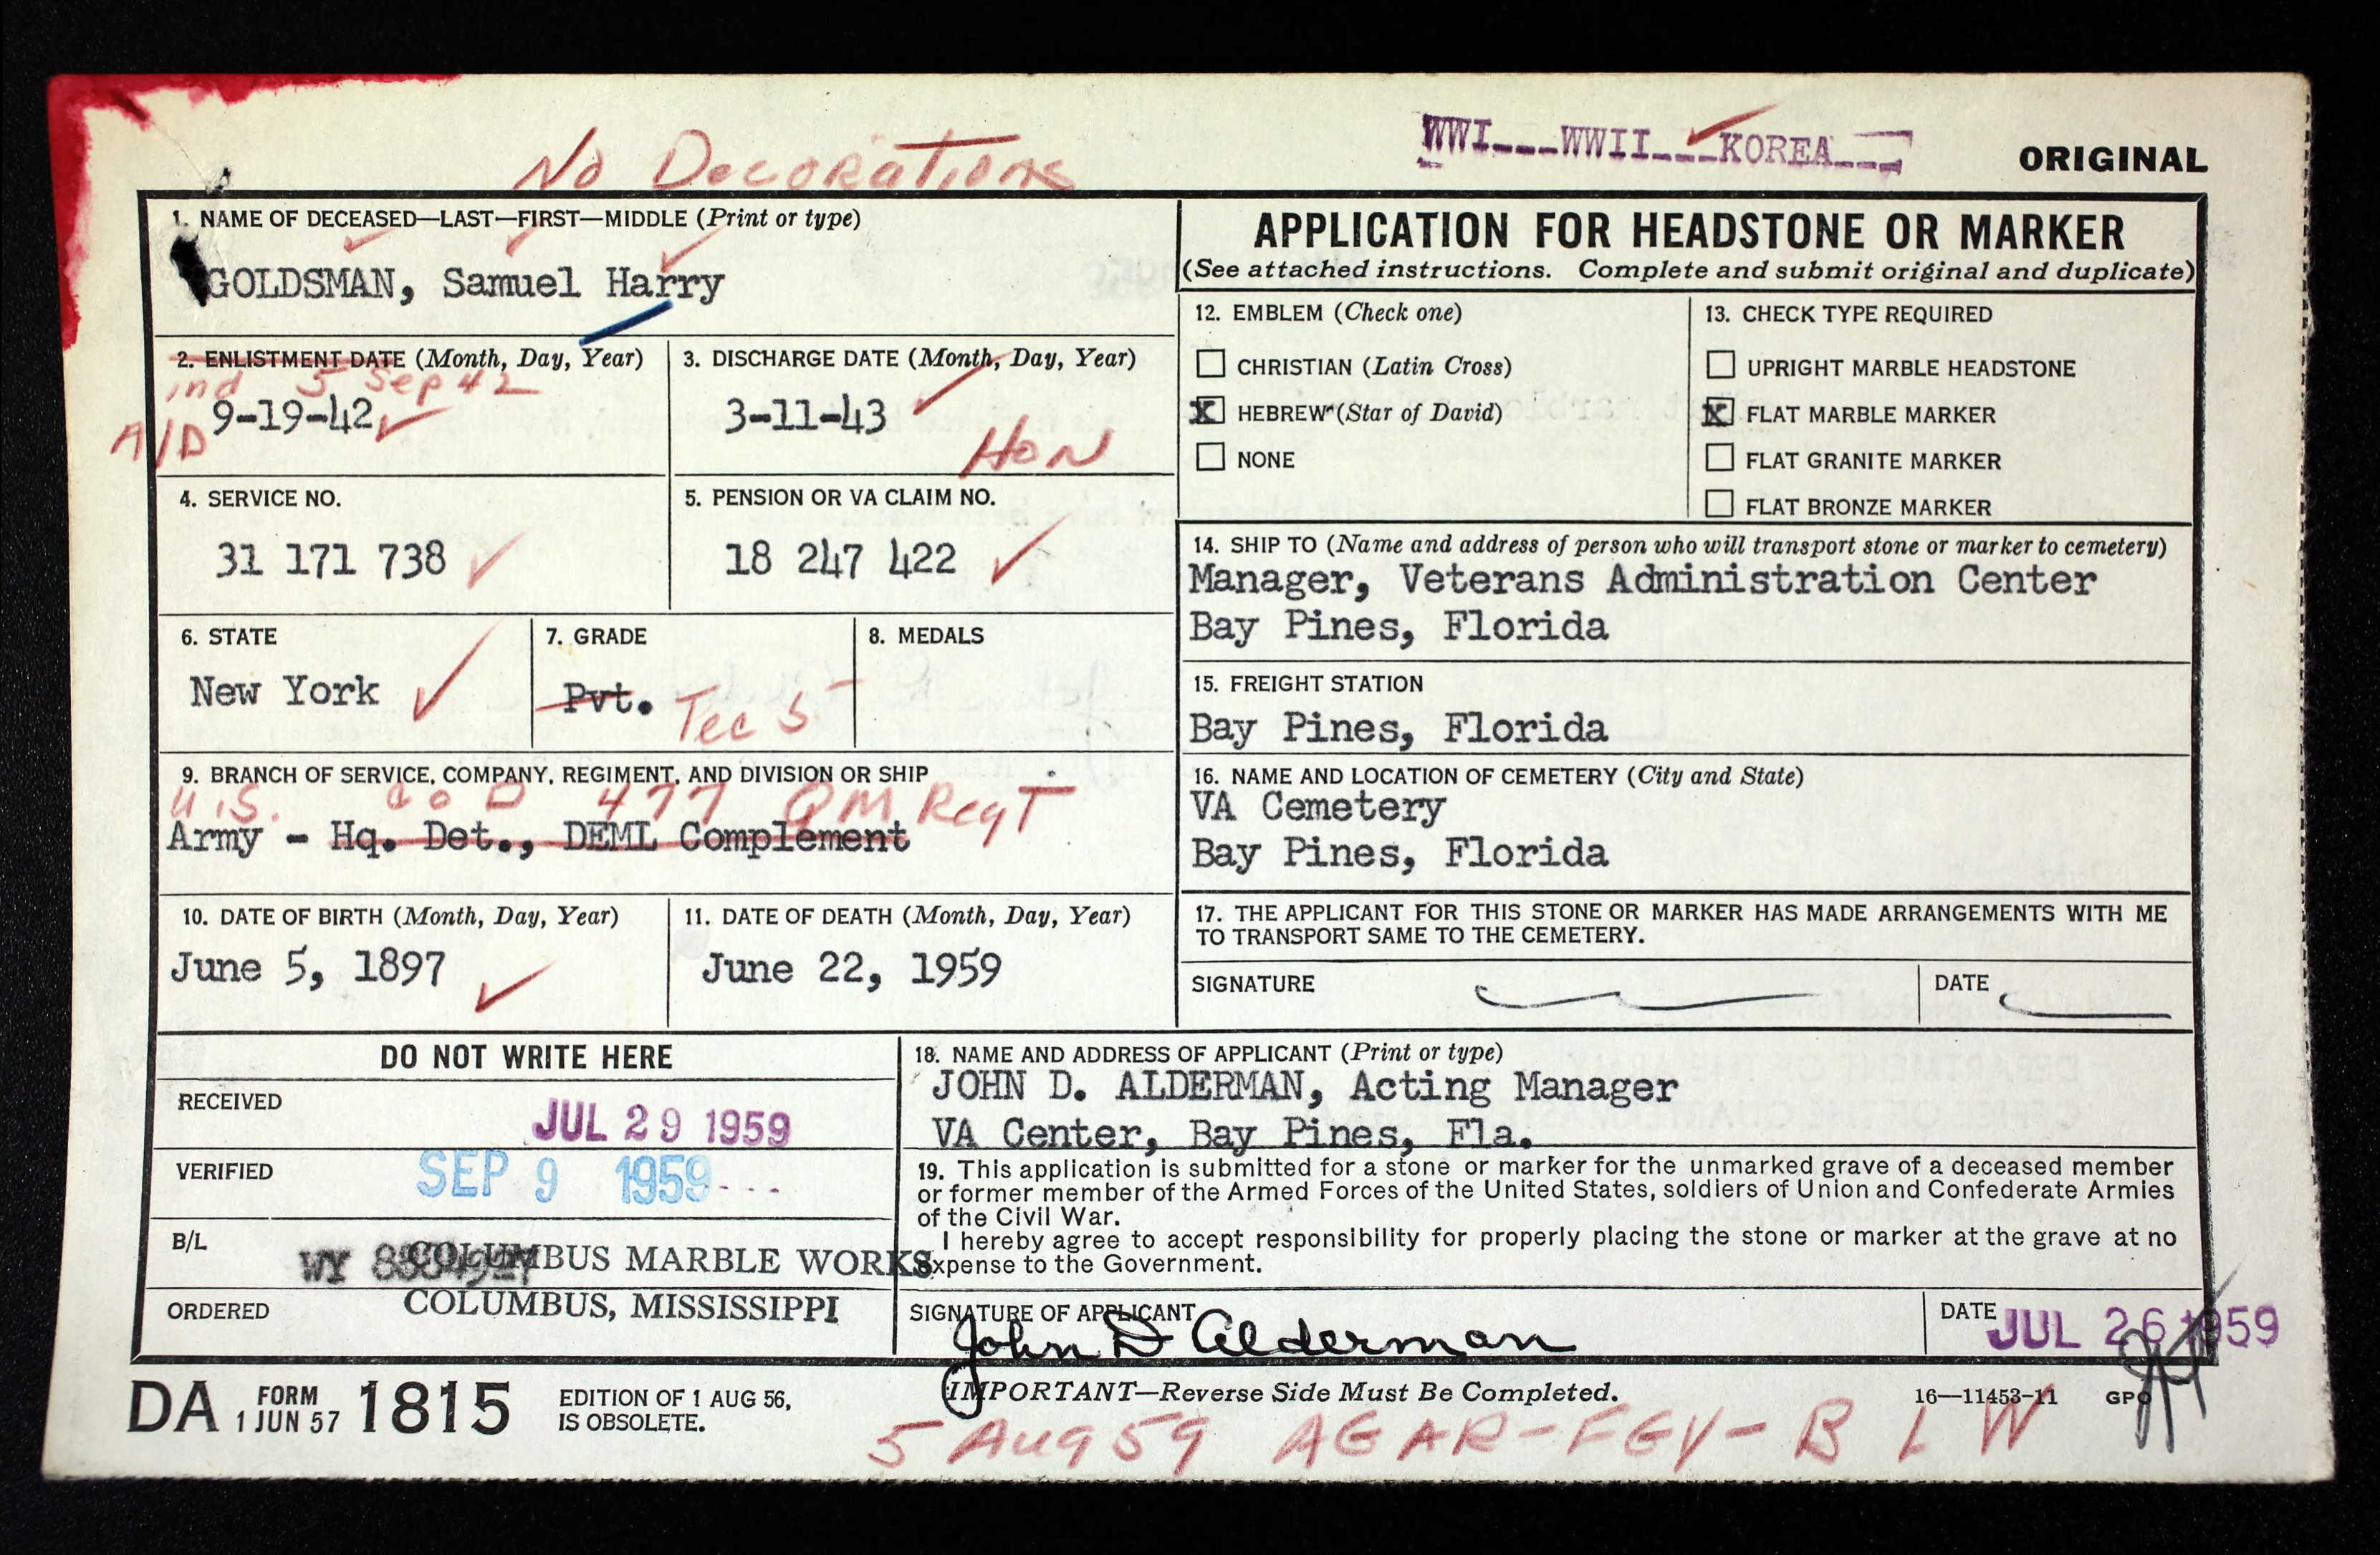 No Decorations
WWI___WWII___KOREA___
ORIGINAL
1. NAME OF DECEASED—LAST—FIRST—MIDDLE (Print or type)
GOLDSMAN, Samuel Harry
2. ENLISTMENT DATE (Month, Day, Year)
ind 5 Sep 42
A/D 9-19-42
3. DISCHARGE DATE (Month, Day, Year)
3-11-43
HON
4. SERVICE NO.
31 171 738
5. PENSION OR VA CLAIM NO.
18 247 422
6. STATE
New York
7. GRADE
Pvt. Tec 5
8. MEDALS
9. BRANCH OF SERVICE, COMPANY, REGIMENT, AND DIVISION OR SHIP
U.S. Co D 477 QM Regt
Army - Hq. Det., DEML Complement
10. DATE OF BIRTH (Month, Day, Year)
June 5, 1897
11. DATE OF DEATH (Month, Day, Year)
June 22, 1959
APPLICATION FOR HEADSTONE OR MARKER
(See attached instructions. Complete and submit original and duplicate)
12. EMBLEM (Check one)
CHRISTIAN (Latin Cross)
X HEBREW (Star of David)
NONE
13. CHECK TYPE REQUIRED
UPRIGHT MARBLE HEADSTONE
X FLAT MARBLE MARKER
FLAT GRANITE MARKER
FLAT BRONZE MARKER
14. SHIP TO (Name and address of person who will transport stone or marker to cemetery)
Manager, Veterans Administration Center
Bay Pines, Florida
15. FREIGHT STATION
Bay Pines, Florida
16. NAME AND LOCATION OF CEMETERY (City and State)
VA Cemetery
Bay Pines, Florida
17. THE APPLICANT FOR THIS STONE OR MARKER HAS MADE ARRANGEMENTS WITH ME
TO TRANSPORT SAME TO THE CEMETERY.
SIGNATURE
DATE
DO NOT WRITE HERE
RECEIVED
JUL 29 1959
VERIFIED
SEP 9 1959
B/L
WY
COLUMBUS MARBLE WORKS
ORDERED
COLUMBUS, MISSISSIPPI
18. NAME AND ADDRESS OF APPLICANT (Print or type)
JOHN D. ALDERMAN, Acting Manager
VA Center, Bay Pines, Fla.
19. This application is submitted for a stone or marker for the unmarked grave of a deceased member
or former member of the Armed Forces of the United States, soldiers of Union and Confederate Armies
of the Civil War.
I hereby agree to accept responsibility for properly placing the stone or marker at the grave at no
expense to the Government.
SIGNATURE OF APPLICANT
John D Alderman
DATE
JUL 26 1959
DA FORM 1 JUN 57 1815
EDITION OF 1 AUG 56,
IS OBSOLETE.
IMPORTANT—Reverse Side Must Be Completed.
16—11453-11 GPO
5 Aug 59 AGAR-FGV-B L W